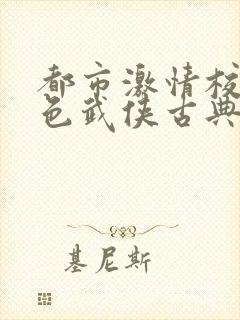 都市激情校
色武侠古典
基尼斯